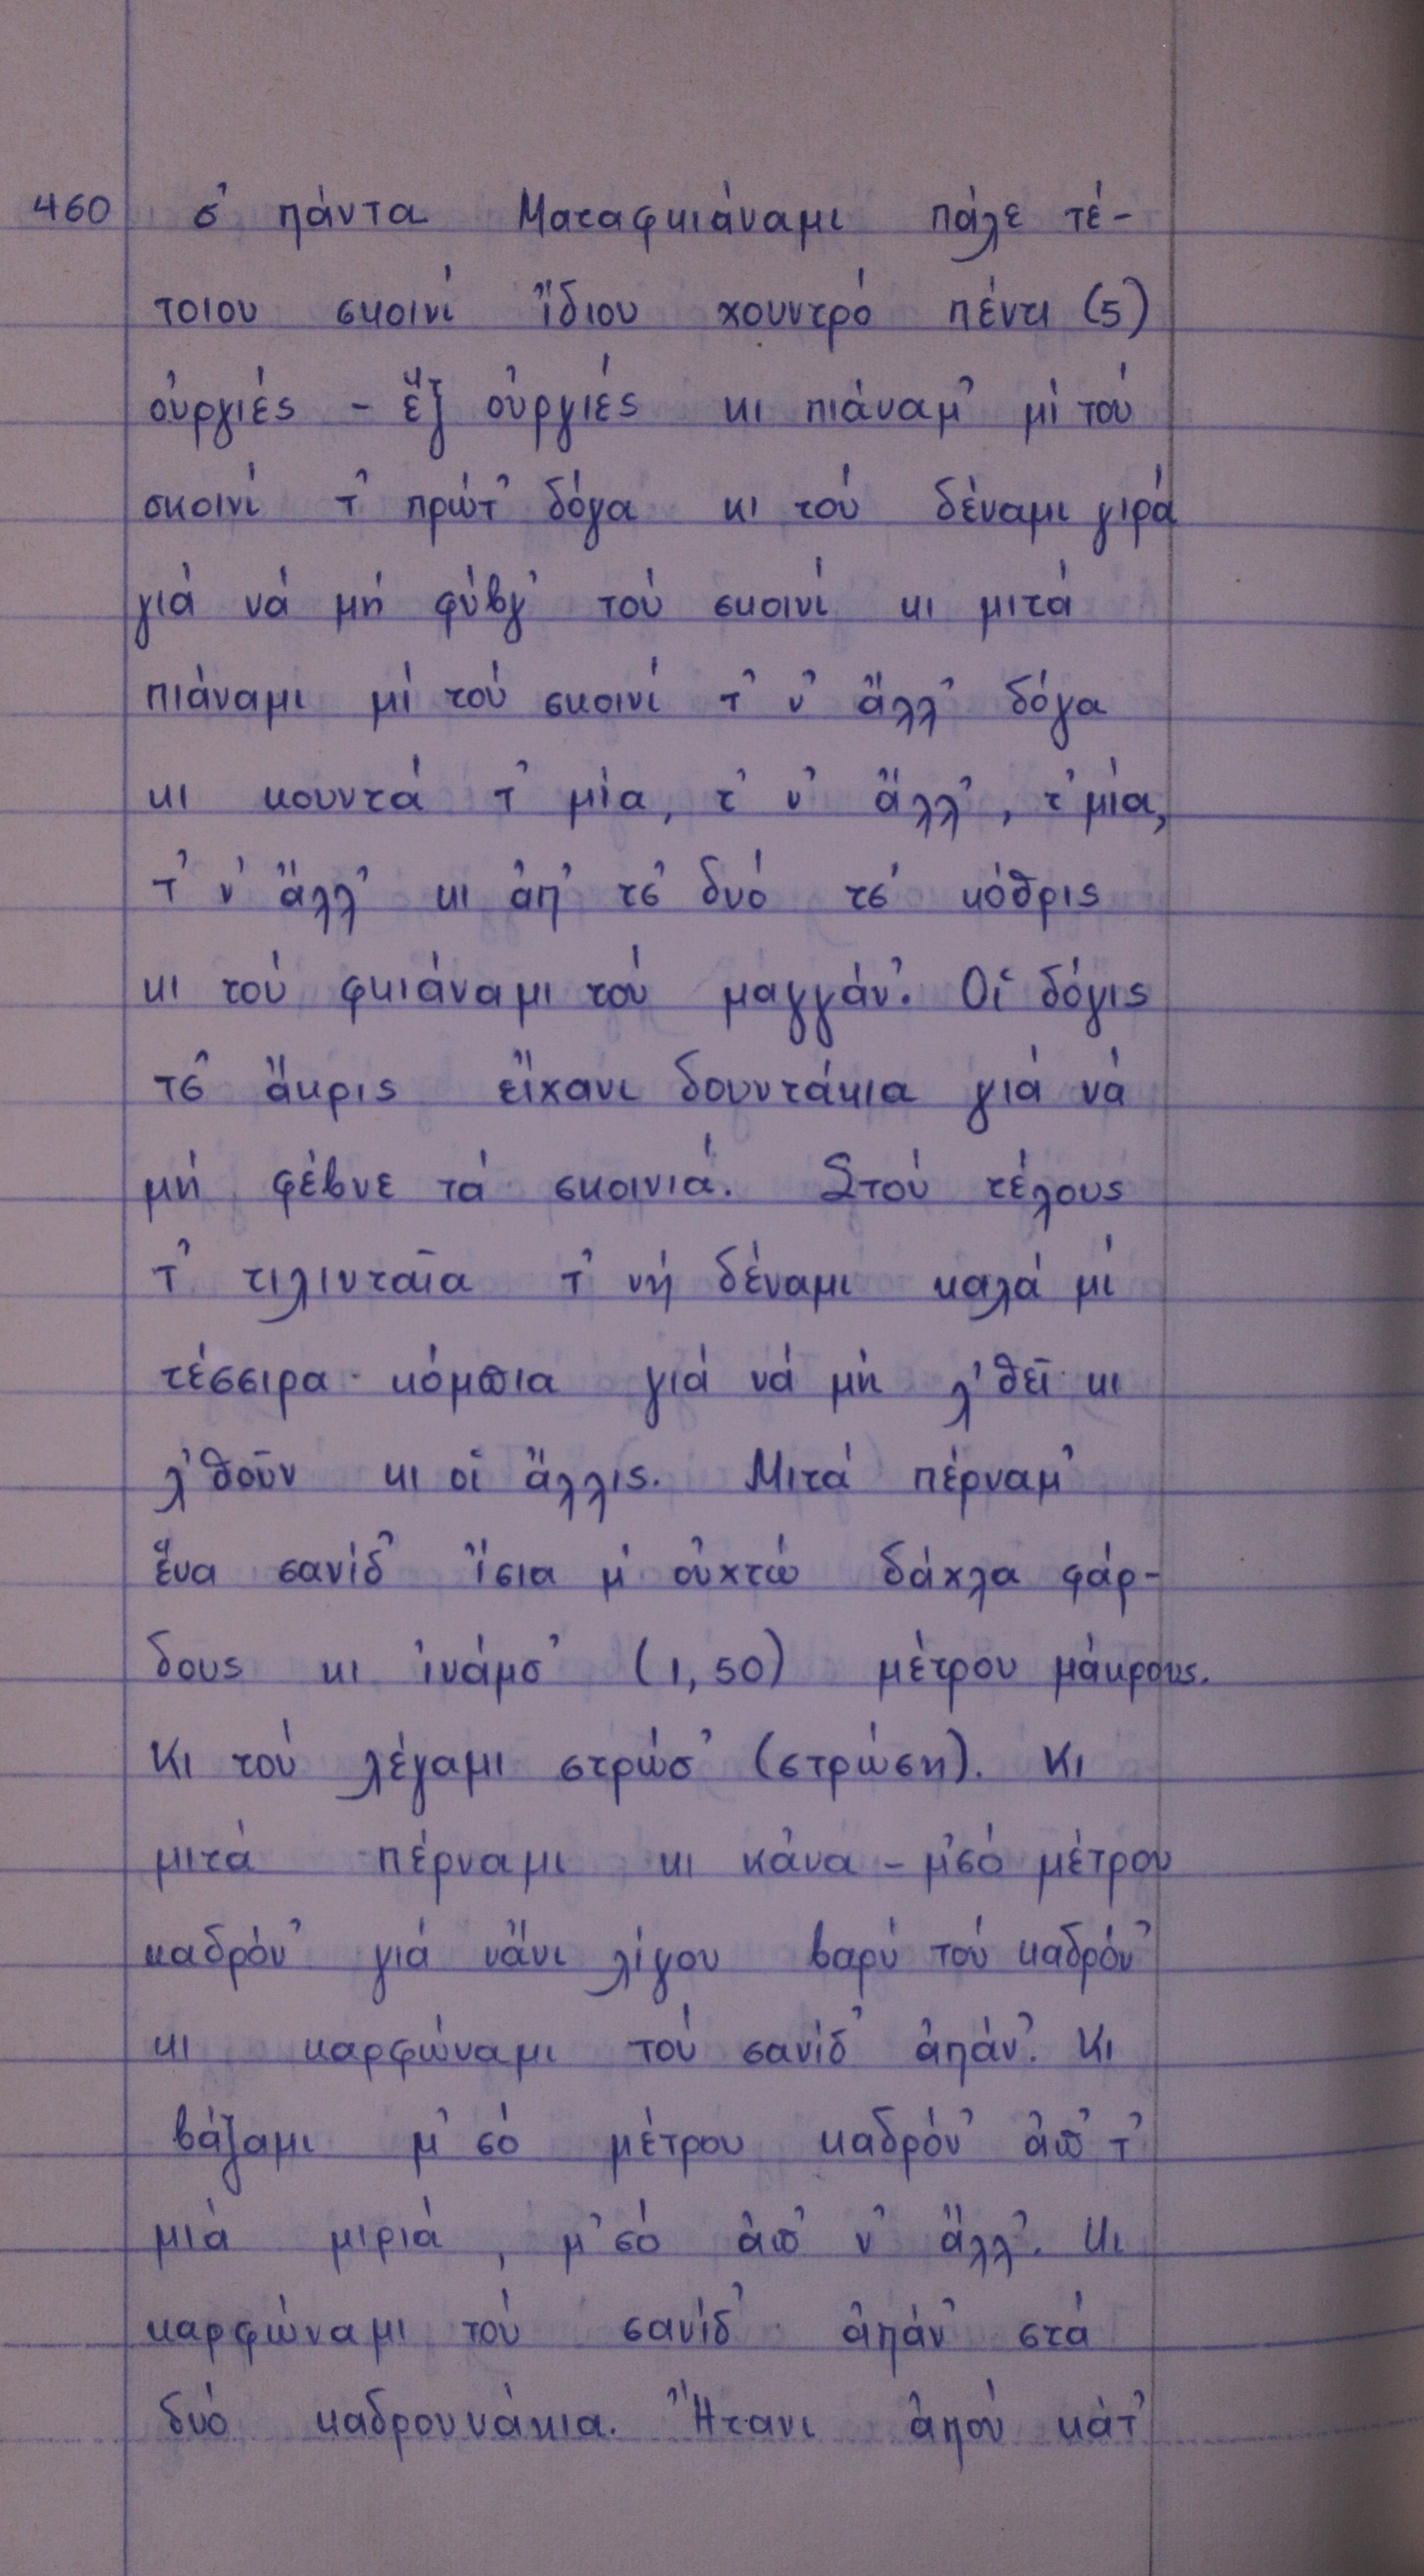 460 σ' πάντα Ματαφκιάναμι πάλε τέ-
τοιου σκοινί ἴδιου χουντρό πέντι (5)
οὐργιές - ἕξ οὐργιές κι πιάναμ' μί τού
σκοινί τ' πρώτ' δόγα κι τού δέναμι γιρά
γιά νά μή φύβγ' τού σκοινί κι μιτά
πιάναμι μί τού σκοινί τ' ν' ἄλλ' δόγα
κι κουντά τ' μία, τ' ν' ἄλλ', τ' μία,
τ' ν' ἄλλ' κι ἀπ' τσ' δυό τσ' κόθρις
κι τού φκιάναμι τού μαγγάν'. Οἱ δόγις
τσ' ἄκρις εἴχανι δουντάκια γιά νά
μή φέβνε τά σκοινιά. Στού τέλους
τ' τιλιυταῖα τ' νή δέναμι καλά μί
τέσσιρα κόμπια γιά νά μή λ'θεῖ κι
λ'θοῦν κι οἱ ἄλλις. Μιτά πέρναμ'
ἕνα σανίδ' ἴσια μ' οὐχτώ δάχλα φάρ-
δους κι ἰνάμσ' (1,50) μέτρου μάκρους.
Κι τού λέγαμι στρώσ' (στρώση). Κι
μιτά πέρναμι κι κάνα-μ'σό μέτρου
καδρόν' γιά νἄνι λίγου βαρύ τού καδρόν'
κι καρφώναμι τού σανίδ' ἀπάν'. Κι
βάζαμι μ'σό μέτρου καδρόν' ἀπ' τ'
μιά μιριά, μ'σό ἀπ' ν' ἄλλ'. Κι
καρφώναμι τού σανίδ' ἀπάν' στά
δυό καδρουνάκια. Ἤτανι ἀπού κάτ'